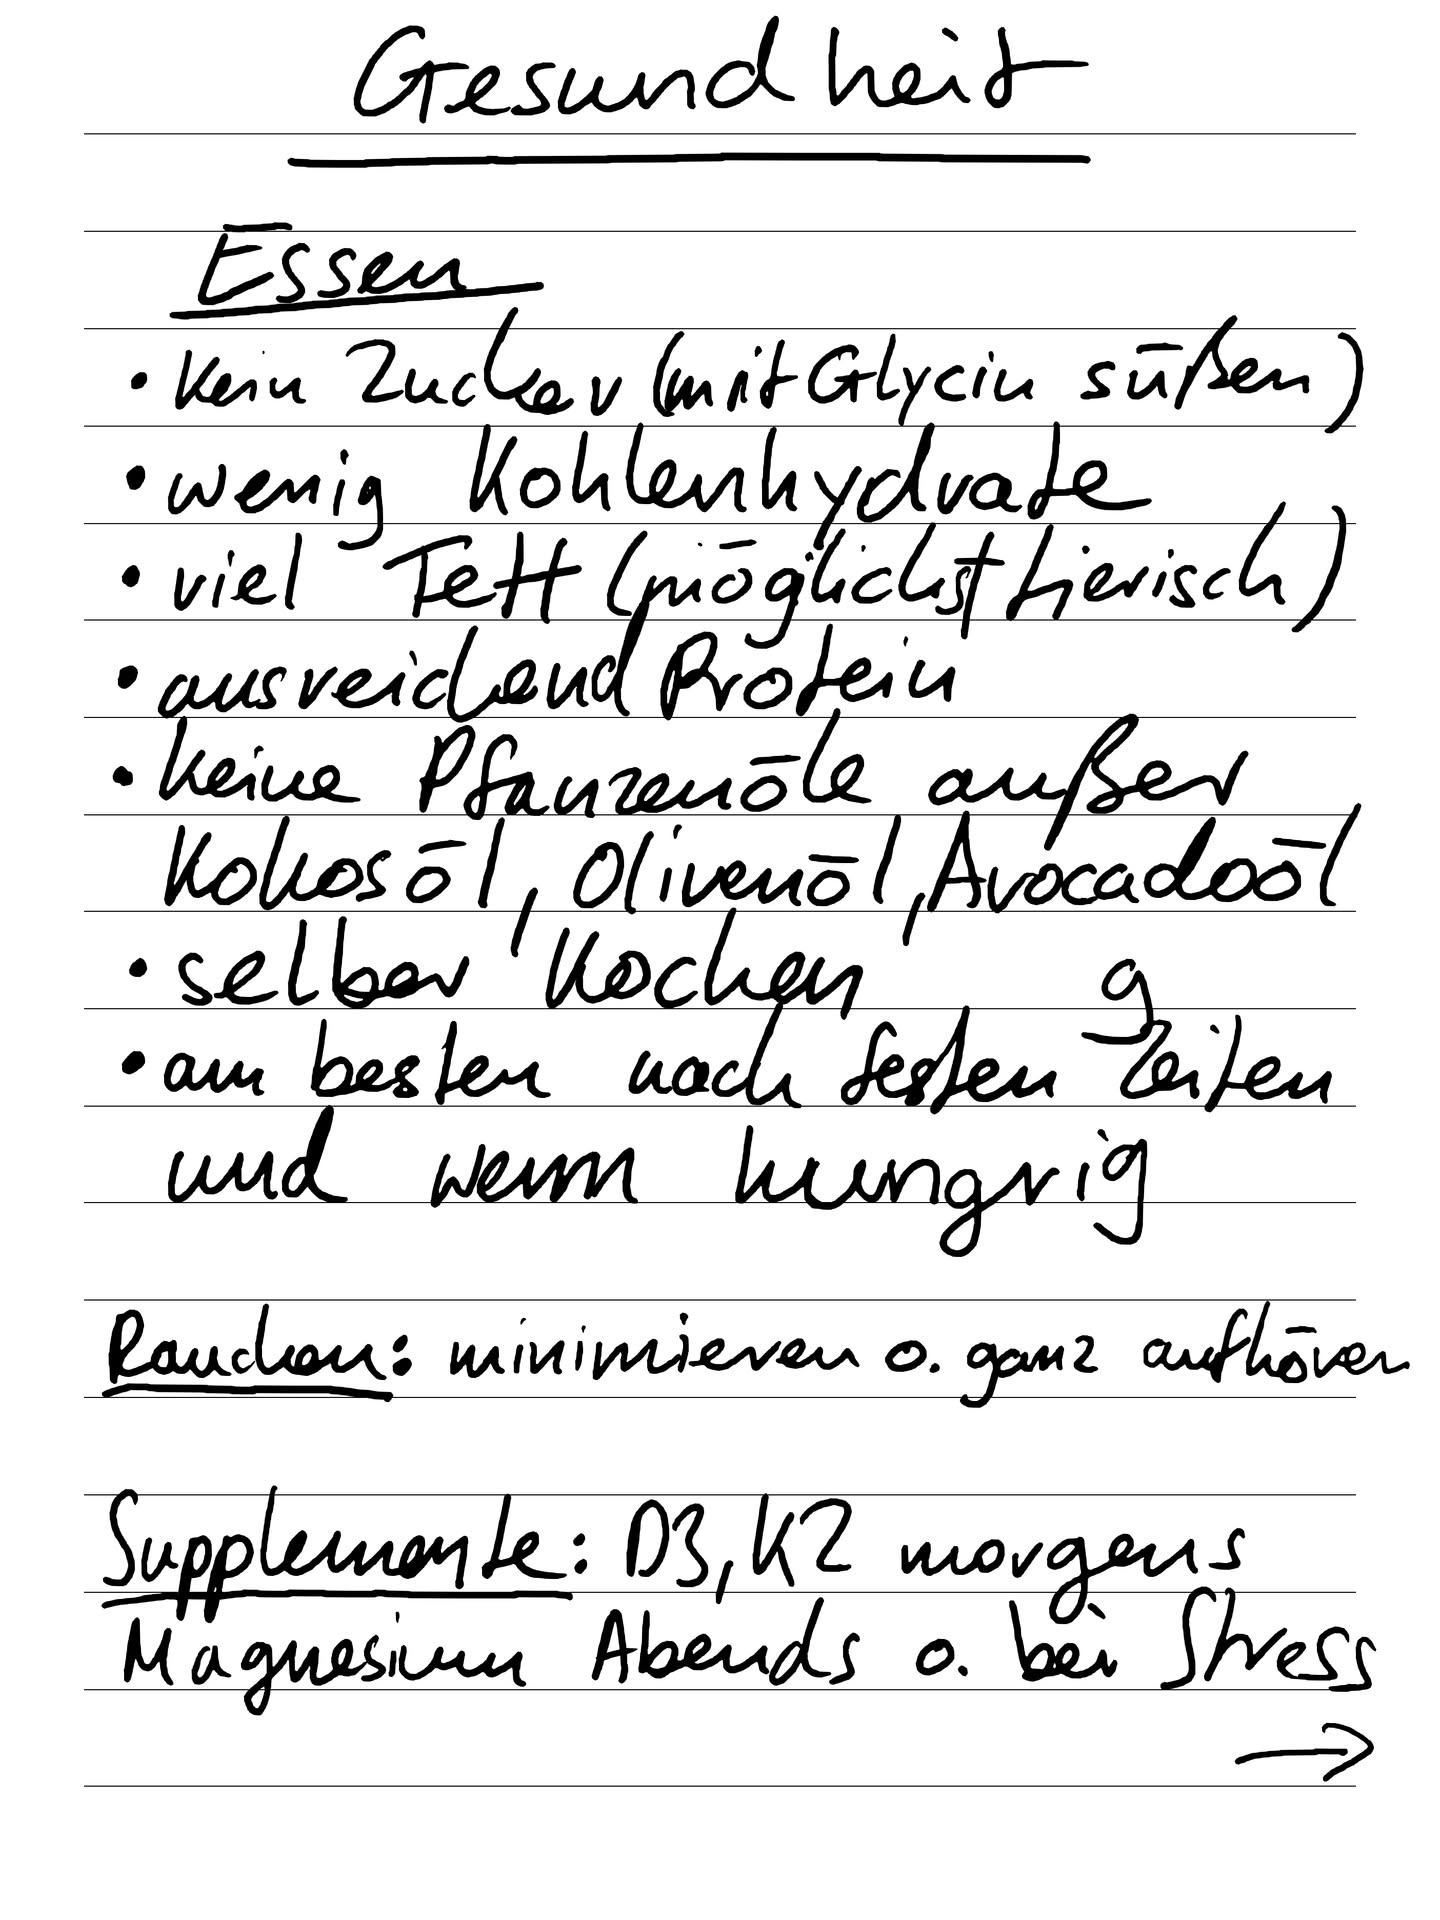 Gesundheit
Essen
• kein Zucker (mit Glycin süßen)
• wenig Kohlenhydrate
• viel Fett (möglichst tierisch)
• ausreichend Protein
• keine Pfanzenöle außer
Kokosöl, Olivenöl, Avocadoöl
• selber Kochen g
• am besten nach festen Zeiten
und wenn hungrig
Rauchen: minimieren o. ganz aufhören
Supplemente: D3, K2 morgens
Magnesium Abends o. bei Stress
→